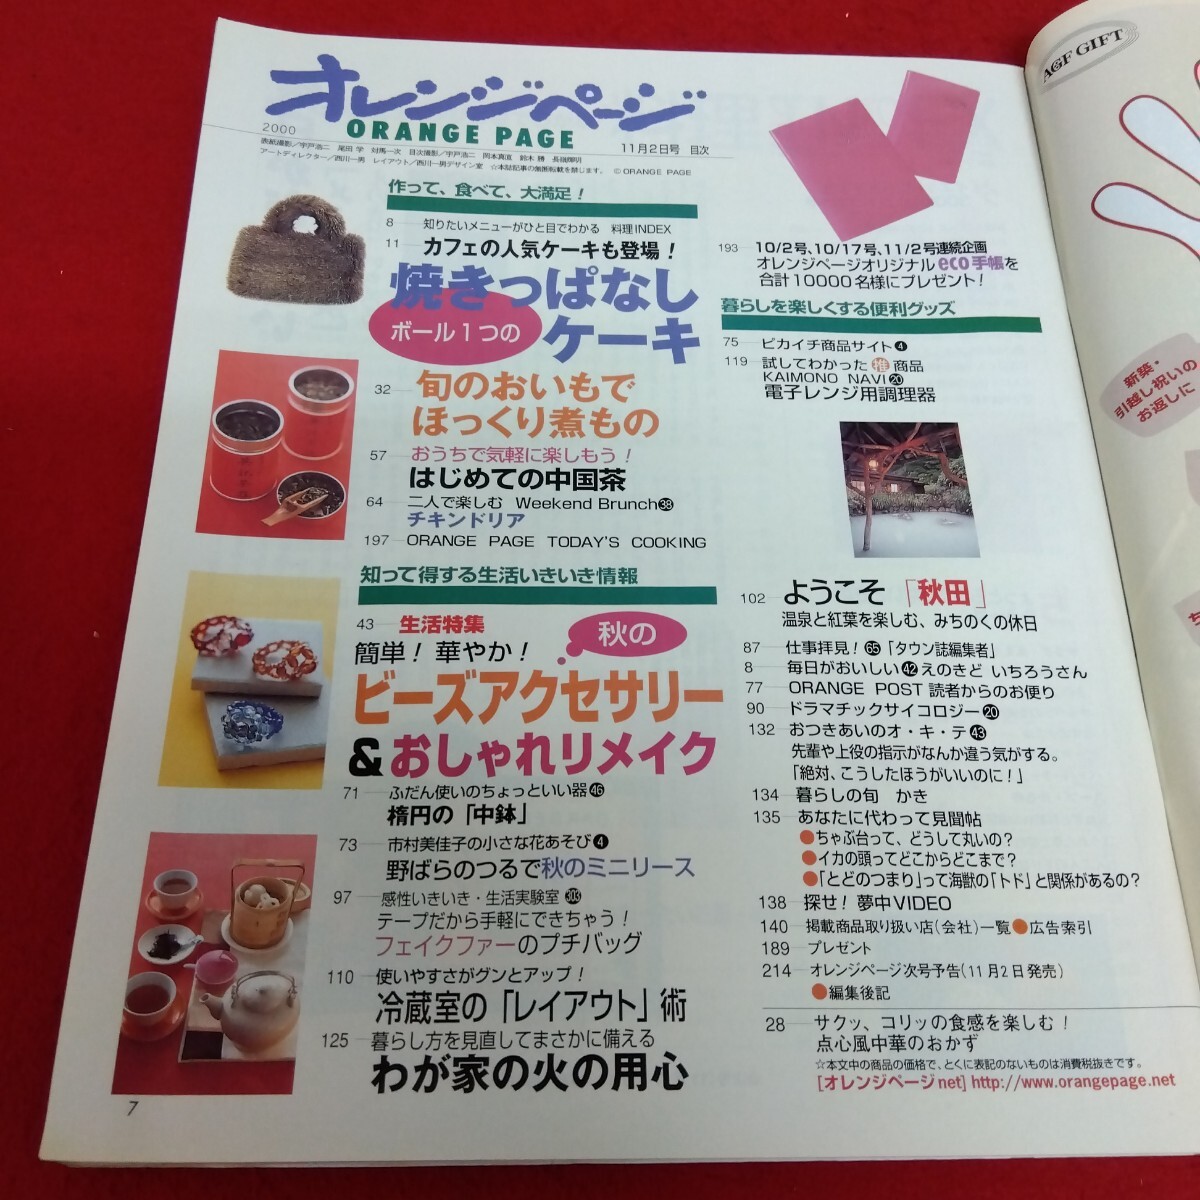 オレンジページ
2000
ORANGE PAGE
11月2日号 目次
表紙撮影/宇戸浩二 尾田学 対馬一次 目次撮影/宇戸浩二 岡本真直 鈴木勝 長嶺輝明
アートディレクター/西川一男 レイアウト/西川一男デザイン室 ☆本誌記事の無断転載を禁じます。 © ORANGE PAGE
作って、食べて、大満足!
8 知りたいメニューがひと目でわかる 料理INDEX
11 カフェの人気ケーキも登場!
焼きっぱなし
ボール1つの
ケーキ
32 旬のおいもで
ほっくり煮もの
57 おうちで気軽に楽しもう!
はじめての中国茶
64 二人で楽しむ Weekend Brunch㊳
チキンドリア
197 ORANGE PAGE TODAY'S COOKING
知って得する生活いきいき情報
43 生活特集
簡単!華やか!
秋の
ビーズアクセサリー
&おしゃれリメイク
71 ふだん使いのちょっといい器㊻
楕円の「中鉢」
73 市村美佳子の小さな花あそび❹
野ばらのつるで秋のミニリース
97 感性いきいき・生活実験室303
テープだから手軽にできちゃう!
フェイクファーのプチバッグ
110 使いやすさがグンとアップ!
冷蔵室の「レイアウト」術
125 暮らし方を見直してまさかに備える
わが家の火の用心
7
193 10/2号、10/17号、11/2号連続企画
オレンジページオリジナルeco手帳を
合計10000名様にプレゼント!
暮らしを楽しくする便利グッズ
75 ピカイチ商品サイト❹
119 試してわかった 推 商品
KAIMONO NAVI⓴
電子レンジ用調理器
102 ようこそ「秋田」
温泉と紅葉を楽しむ、みちのくの休日
87 仕事拝見!65「タウン誌編集者」
8 毎日がおいしい㊷えのきど いちろうさん
77 ORANGE POST 読者からのお便り
90 ドラマチックサイコロジー⓴
132 おつきあいのオ・キ・テ㊸
先輩や上役の指示がなんか違う気がする。
「絶対、こうしたほうがいいのに!」
134 暮らしの旬 かき
135 あなたに代わって見聞帖
●ちゃぶ台って、どうして丸いの?
●イカの頭ってどこからどこまで?
●「とどのつまり」って海獣の「トド」と関係があるの?
138 探せ!夢中VIDEO
140 掲載商品取り扱い店(会社)一覧●広告索引
189 プレゼント
214 オレンジページ次号予告(11月2日発売)
●編集後記
28 サクッ、コリッの食感を楽しむ!
点心風中華のおかず
☆本文中の商品の価格で、とくに表記のないものは消費税抜きです。
[オレンジページnet] http://www.orangepage.net
AGF GIFT
新築・
引越し祝いの
お返しに